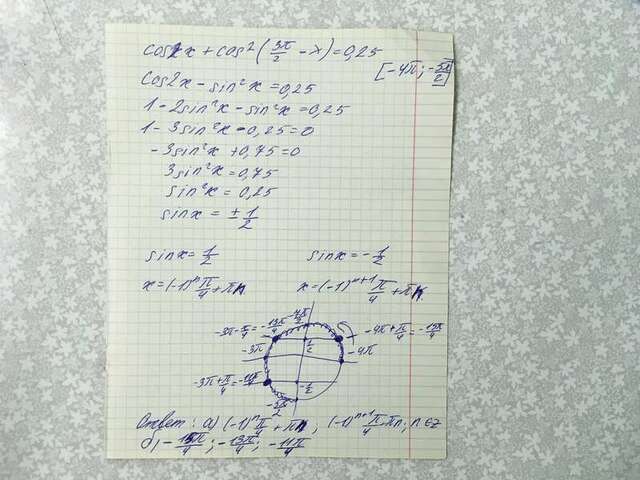 cos2x + cos²(3π/2 - x) = 0,25
[-4π; -5π/2]
cos2x - sin²x = 0,25
1 - 2sin²x - sin²x = 0,25
1 - 3sin²x - 0,25 = 0
- 3sin²x + 0,75 = 0
3sin²x = 0,75
sin²x = 0,25
sinx = ± 1/2
sinx = 1/2 sinx = - 1/2
x = (-1)ⁿ π/4 + πn x = (-1)ⁿ⁺¹ π/4 + πn
-3π - π/4 = -13π/4 -4π + π/4 = -15π/4
-3π 1/2 -4π
-3π + π/4 = -11π/4 -1/2
-5π/2
Ответ: а) (-1)ⁿ π/4 + πn ; (-1)ⁿ⁺¹ π/4 + πn; n∈z
б) - 15π/4 ; -13π/4 ; -11π/4